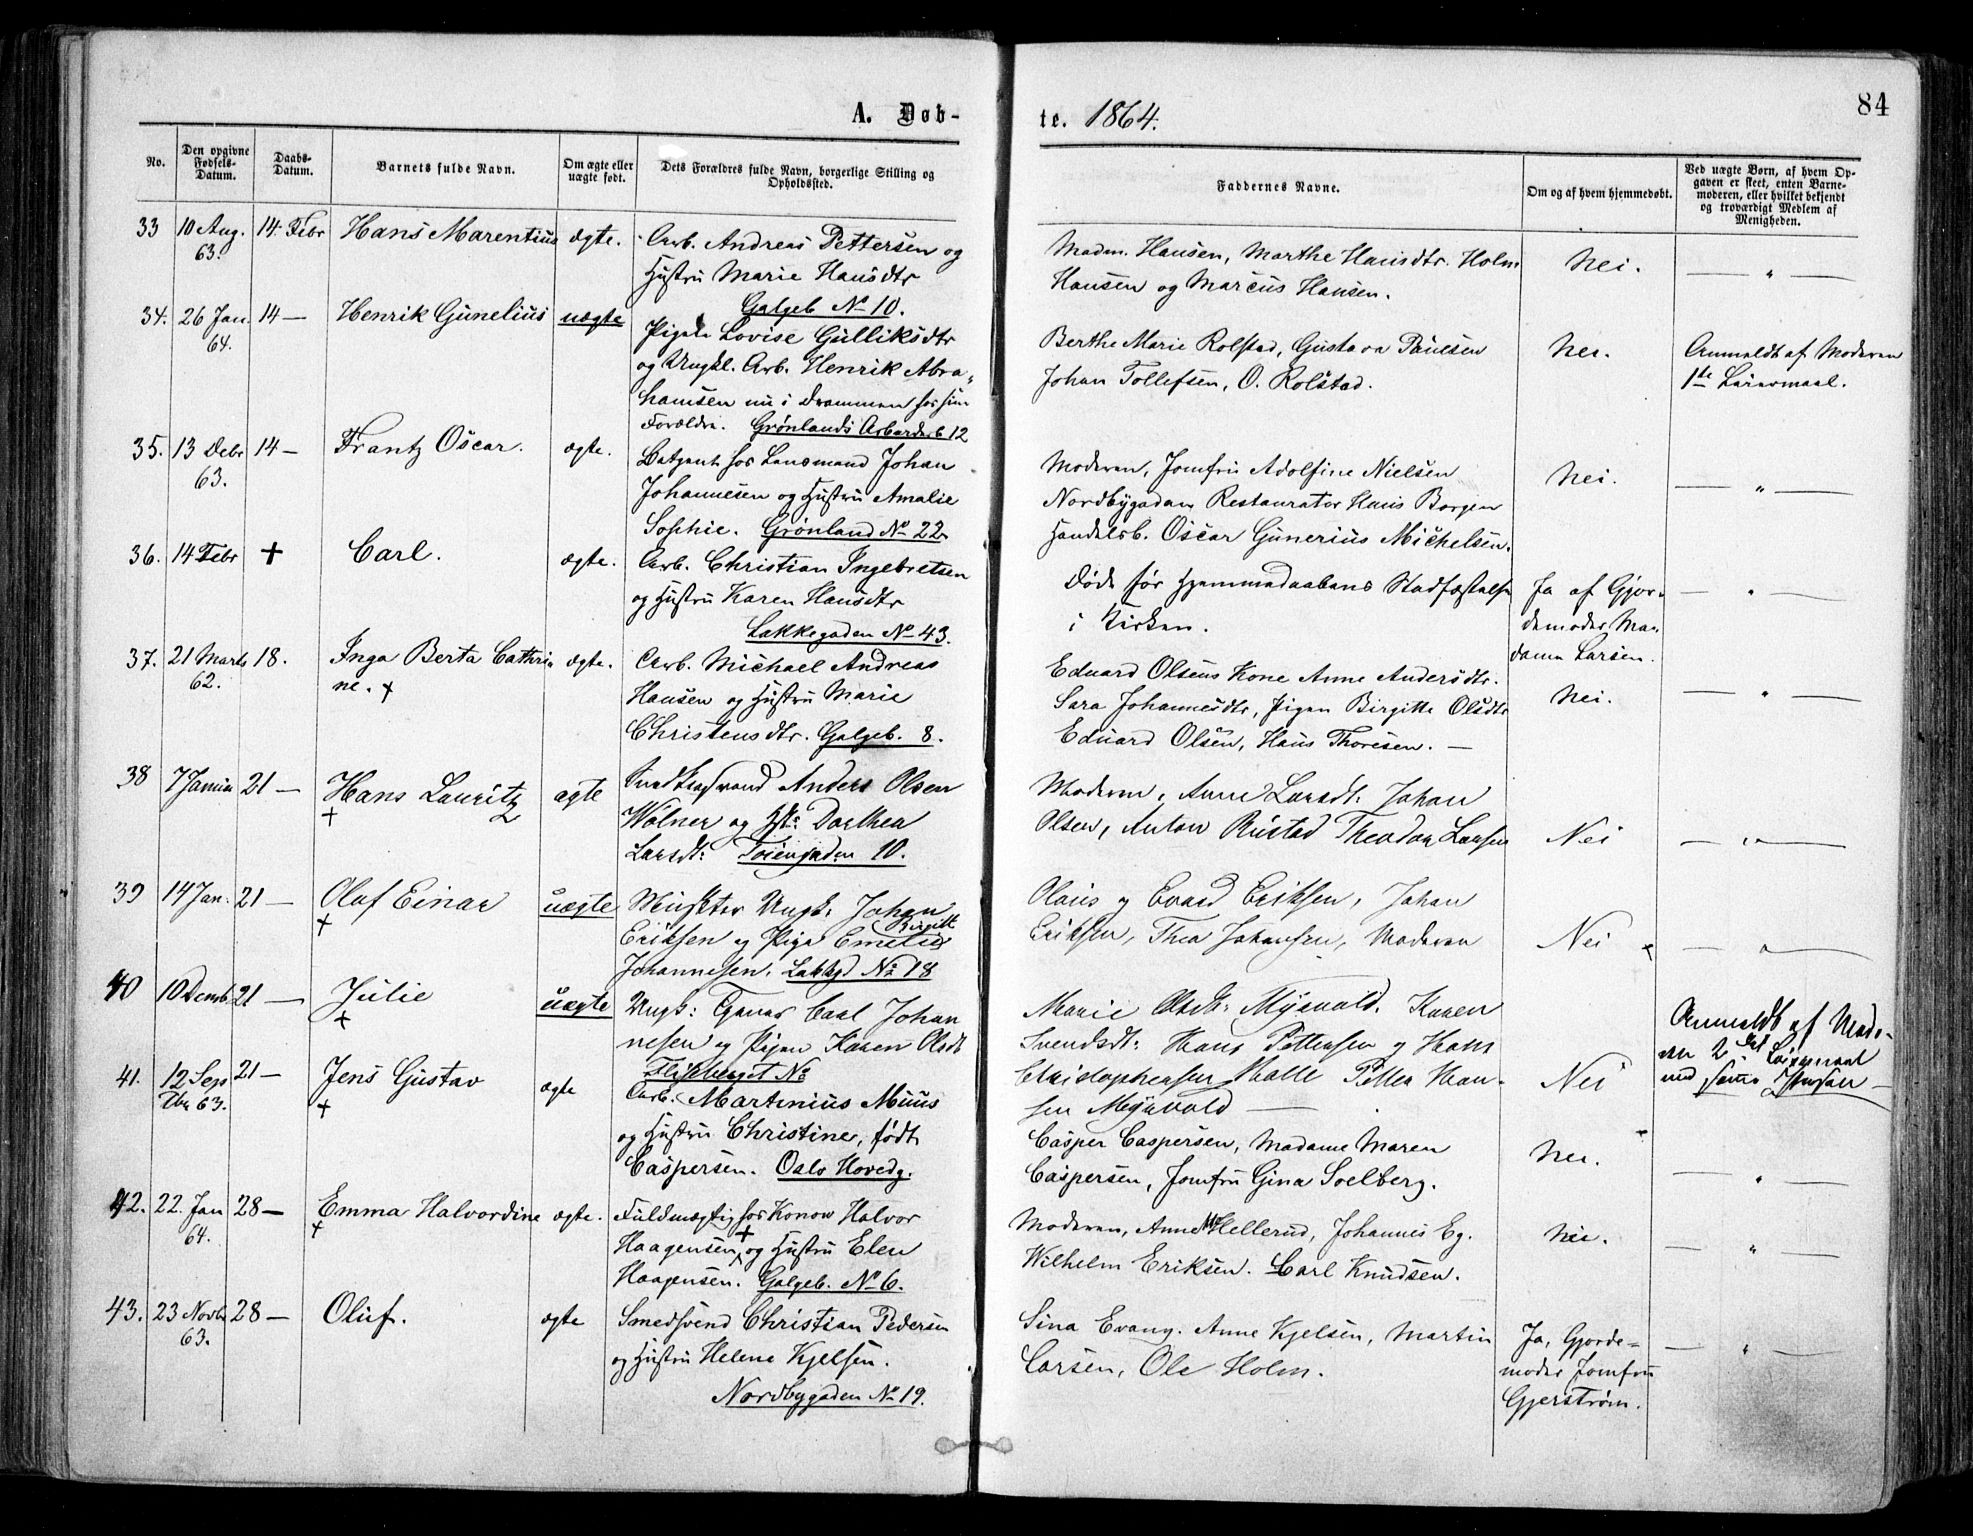 84
A. Døb-
te. 1864.
No.
Den opgivne Fødsels-Datum.
Daabs-Datum.
Barnets fulde Navn.
Om ægte eller uægte født.
Dets Forældres fulde Navn, borgerlige Stilling og Opholdssted.
Faddernes Navne.
Om og af hvem hjemmedøbt.
Ved uægte Børn, af hvem Op-
gaven er skeet, enten Barne-
moderen, eller hvilket bekjendt
og troværdigt Medlem af
Menigheden.
33 10 Aug. 63. 14. Febr Hans Marentius ægte.
Arb. Andreas Pettersen og
Hustru Marie Hansdtr
Galgeb No 10.
Madm. Hansen, Marthe Hansdtr. Holm
Hansen og Marcus Hansen.
Nei. — " —
34. 26 Jan. 64. 14 — Henrik Gunelius uægte
Pigen Lovise Gulliksdtr
og Ungkl. Arb. Henrik Abra-
hamsen nu i Drammen hos sine
Forældre. Grønlands Arbarderb 12
Berthe Marie Rolstad, Gustava Paulsen
Johan Tollefsen, O. Rolstad.
Nei.
Anmeldt af Moderen
1ste Leiermaal.
35. 13 Debr 63. 14 — Frantz Oscar. ægte.
Betjent hos Lensmand Johan
Johannesen og Hustru Amalie
Sophie. Grønland No 22
Moderen, Jomfru Adolfine Nielsen
Nordbygaden Restaurator Hans Borgen
Handelsb. Oscar Gunerius Michelsen.
Nei. — " —
36. 14 Febr + Carl. ægte.
Arb. Christian Ingebretsen
og Hustru Karen Hansdtr
Lakkegaden No 43.
Døde før Hjemmedaabens Stadfæstelse
i Kirken.
Ja af Gjor-
demoder Ma-
dame Larsen.
— " —
37. 21 Marts 62. 18. Inga Berta Cathri-
ne. + ægte.
Arb. Michael Andreas
Hansen og Hustru Marie
Christensdtr. Galgeb. 8.
Eduard Olsens Kone Anne Andersdtr.
Sara Johannesdtr, Pigen Birgitte Olsdtr
Eduard Olsen, Hans Thoresen. —
Nei. — " —
38 7 Janua 21 — Hans Lauritz + ægte
Anders Olsen
Wolner og Hst: Dorthea
Larsdt: Tøiengaden 10.
Moderen, Anne Larsdt: Johan
Olsen, Anton Rustad Theodor Larsen
Nei — " —
39 14 Jan. 21 — Olaf Einar + uægte
Musketer Ungk. Johan
Eriksen og Pige Emelie Birgitte
Johannesen. Lakkgd No 18
Olaus og Evard Eriksen, Johan
Eriksen, Thea Johansen, Moderen
Nei — " —
40 10 Decmb. 21 — Julie + uægte
Ungk: Carl Johan
nesen og Pigen Karen Olsdt
Flisberget No
Marie Olsdt: Mysvold. Karen
Svendsdt: Hans Pettersen og Hans
Christophersen Petter Han-
sen Mysvold —
Nei
Anmeldt af Mode-
ren 2det Leiermaal
med samme Person —
41. 12 Sep Tbr 63. 21 — Jens Gustav + ægte
Arb. Martinius Muus
og Hustru Christine, født
Caspersen. Oslo Hovedg.
Casper Caspersen, Madame Maren
Caspersen, Jomfru Gina Soelberg.
Nei. — " —
42. 22. Jan 64. 28 — Emma Halvordine + ægte.
Fuldmægtig hos Konow Halvor
Haagensen, + og Hustru Elen
Haagensen. Galgeb. No 6.
Moderen, Anne Hellerud, Johannes Eg.
Wilhelm Eriksen. Carl Knudsen.
Nei. — " —
43. 23 Novbr 63. 28 — Oluf. ægte
Smedsvend Christian Pedersen
og Hustru Helene Kjelsen.
Nordbygaden No 19.
Sina Evang. Anne Kjelsen, Martin
Larsen, Ole Holm.
Ja, Gjorde-
moder Jomfru
Gjerstrøm.
— " —